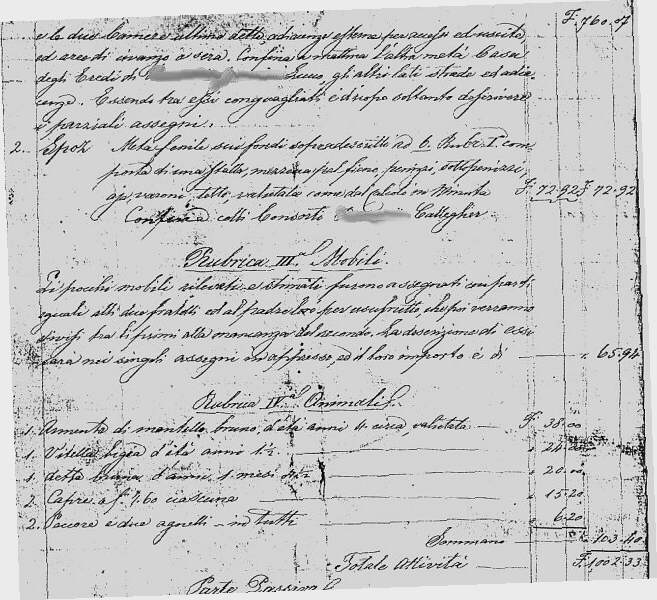 e le due Camere ultimo dette, adiacenze esterne per accessi ed uscita F. 760.07
ed aree di avanzo a sera. Confina a mattina l'altra metà Casa
degli Eredi di Succo, gli altri lati strade ed adia-
cenze. Essendo tra essi conguagliati è d'uopo soltanto descrivere
i parziali assegni.
2. Metà fenile sui fondi sopradescritti ad 6. Rubr. I. com-
posta di una Stalla, mezzaria pel fieno,
tutto, valutata come dal calcolo in Minuta F. 72.92 F. 72.92
Confina a colti Consorte Callegher
Rubrica III.a Mobili.
Li pochi mobili rilevati e stimati furono assegnati in parti
eguali alli due fratelli ed al padre loro per usufrutto, che poi verranno
divisi tra li primi alla mancanza del secondo, la descrizione di essi
sarà nei singoli assegni in appresso, ed il loro importo è di " 65.94
Rubrica IV.a Animali.
1. Armenta di mantello bruno, d'età anni 4 circa, valutata F. 38.00
1. Vitella bigia d'età anno 1½ " 24.00
1. detta bruna d'anni 1 mesi " 20.00
2. Capre a f. 7.60 ciascuna " 15.20
2. Pecore e due agnelli - in tutti " 6.20
Sommano " 103.40
Totale Attività F. 1002.33
Parte Passiva